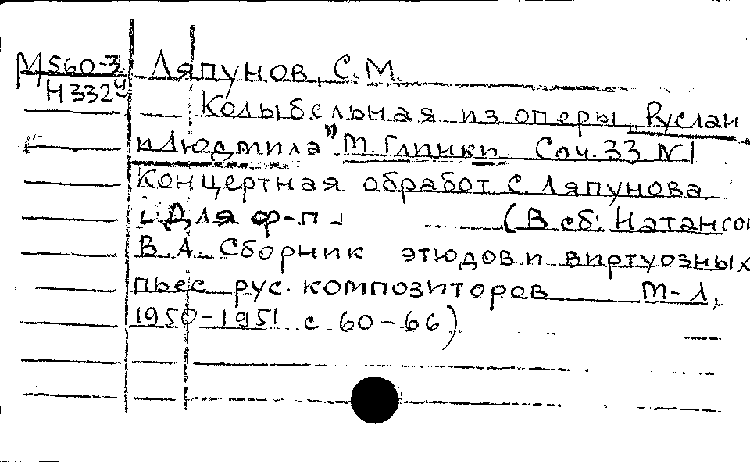 М560-3 Ляпунов, С.М.
Н332ч Колыбельная из оперы „Руслан
и Людмила" М. Глинки Соч. 33 N1
Концертная обработ. С. Ляпунова
[Для ф-п.] (В сб: Натансон
В.А. Сборник этюдов и виртуозных
пьес рус. композиторов М-Л,
1950-1951 с 60-66)